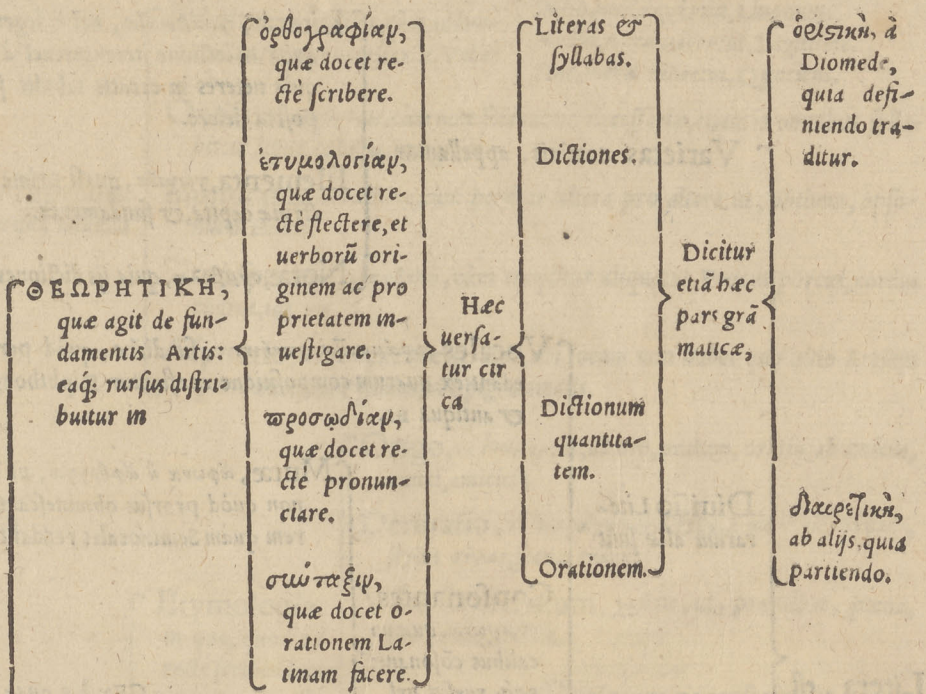 ΘΕΩΡΗΤΙΚΗ,
quæ agit de fun-
damentis Artis:
eaq́; rursus distri-
buitur in
ὀρθογραφίαν,
quæ docet re-
ctè scribere.
ἐτυμολογίαν,
quæ docet re-
ctè flectere, et
uerborū ori-
ginem ac pro
prietatem in-
uestigare.
προσῳδίαν,
quæ docet re-
ctè pronun-
ciare.
σιώταξιν,
quæ docet o-
rationem La-
tinam facere.
Hæc
uersa-
tur cir
ca
Literas &
syllabas.
Dictiones.
Dictionum
quantita-
tem.
Orationem.
Dicitur
etiā hæc
pars grā
maticæ,
ὁριστικὴ, à
Diomede,
quia defi-
niendo tra-
ditur.
διαιρετικὴ,
ab alijs, quia
partiendo.